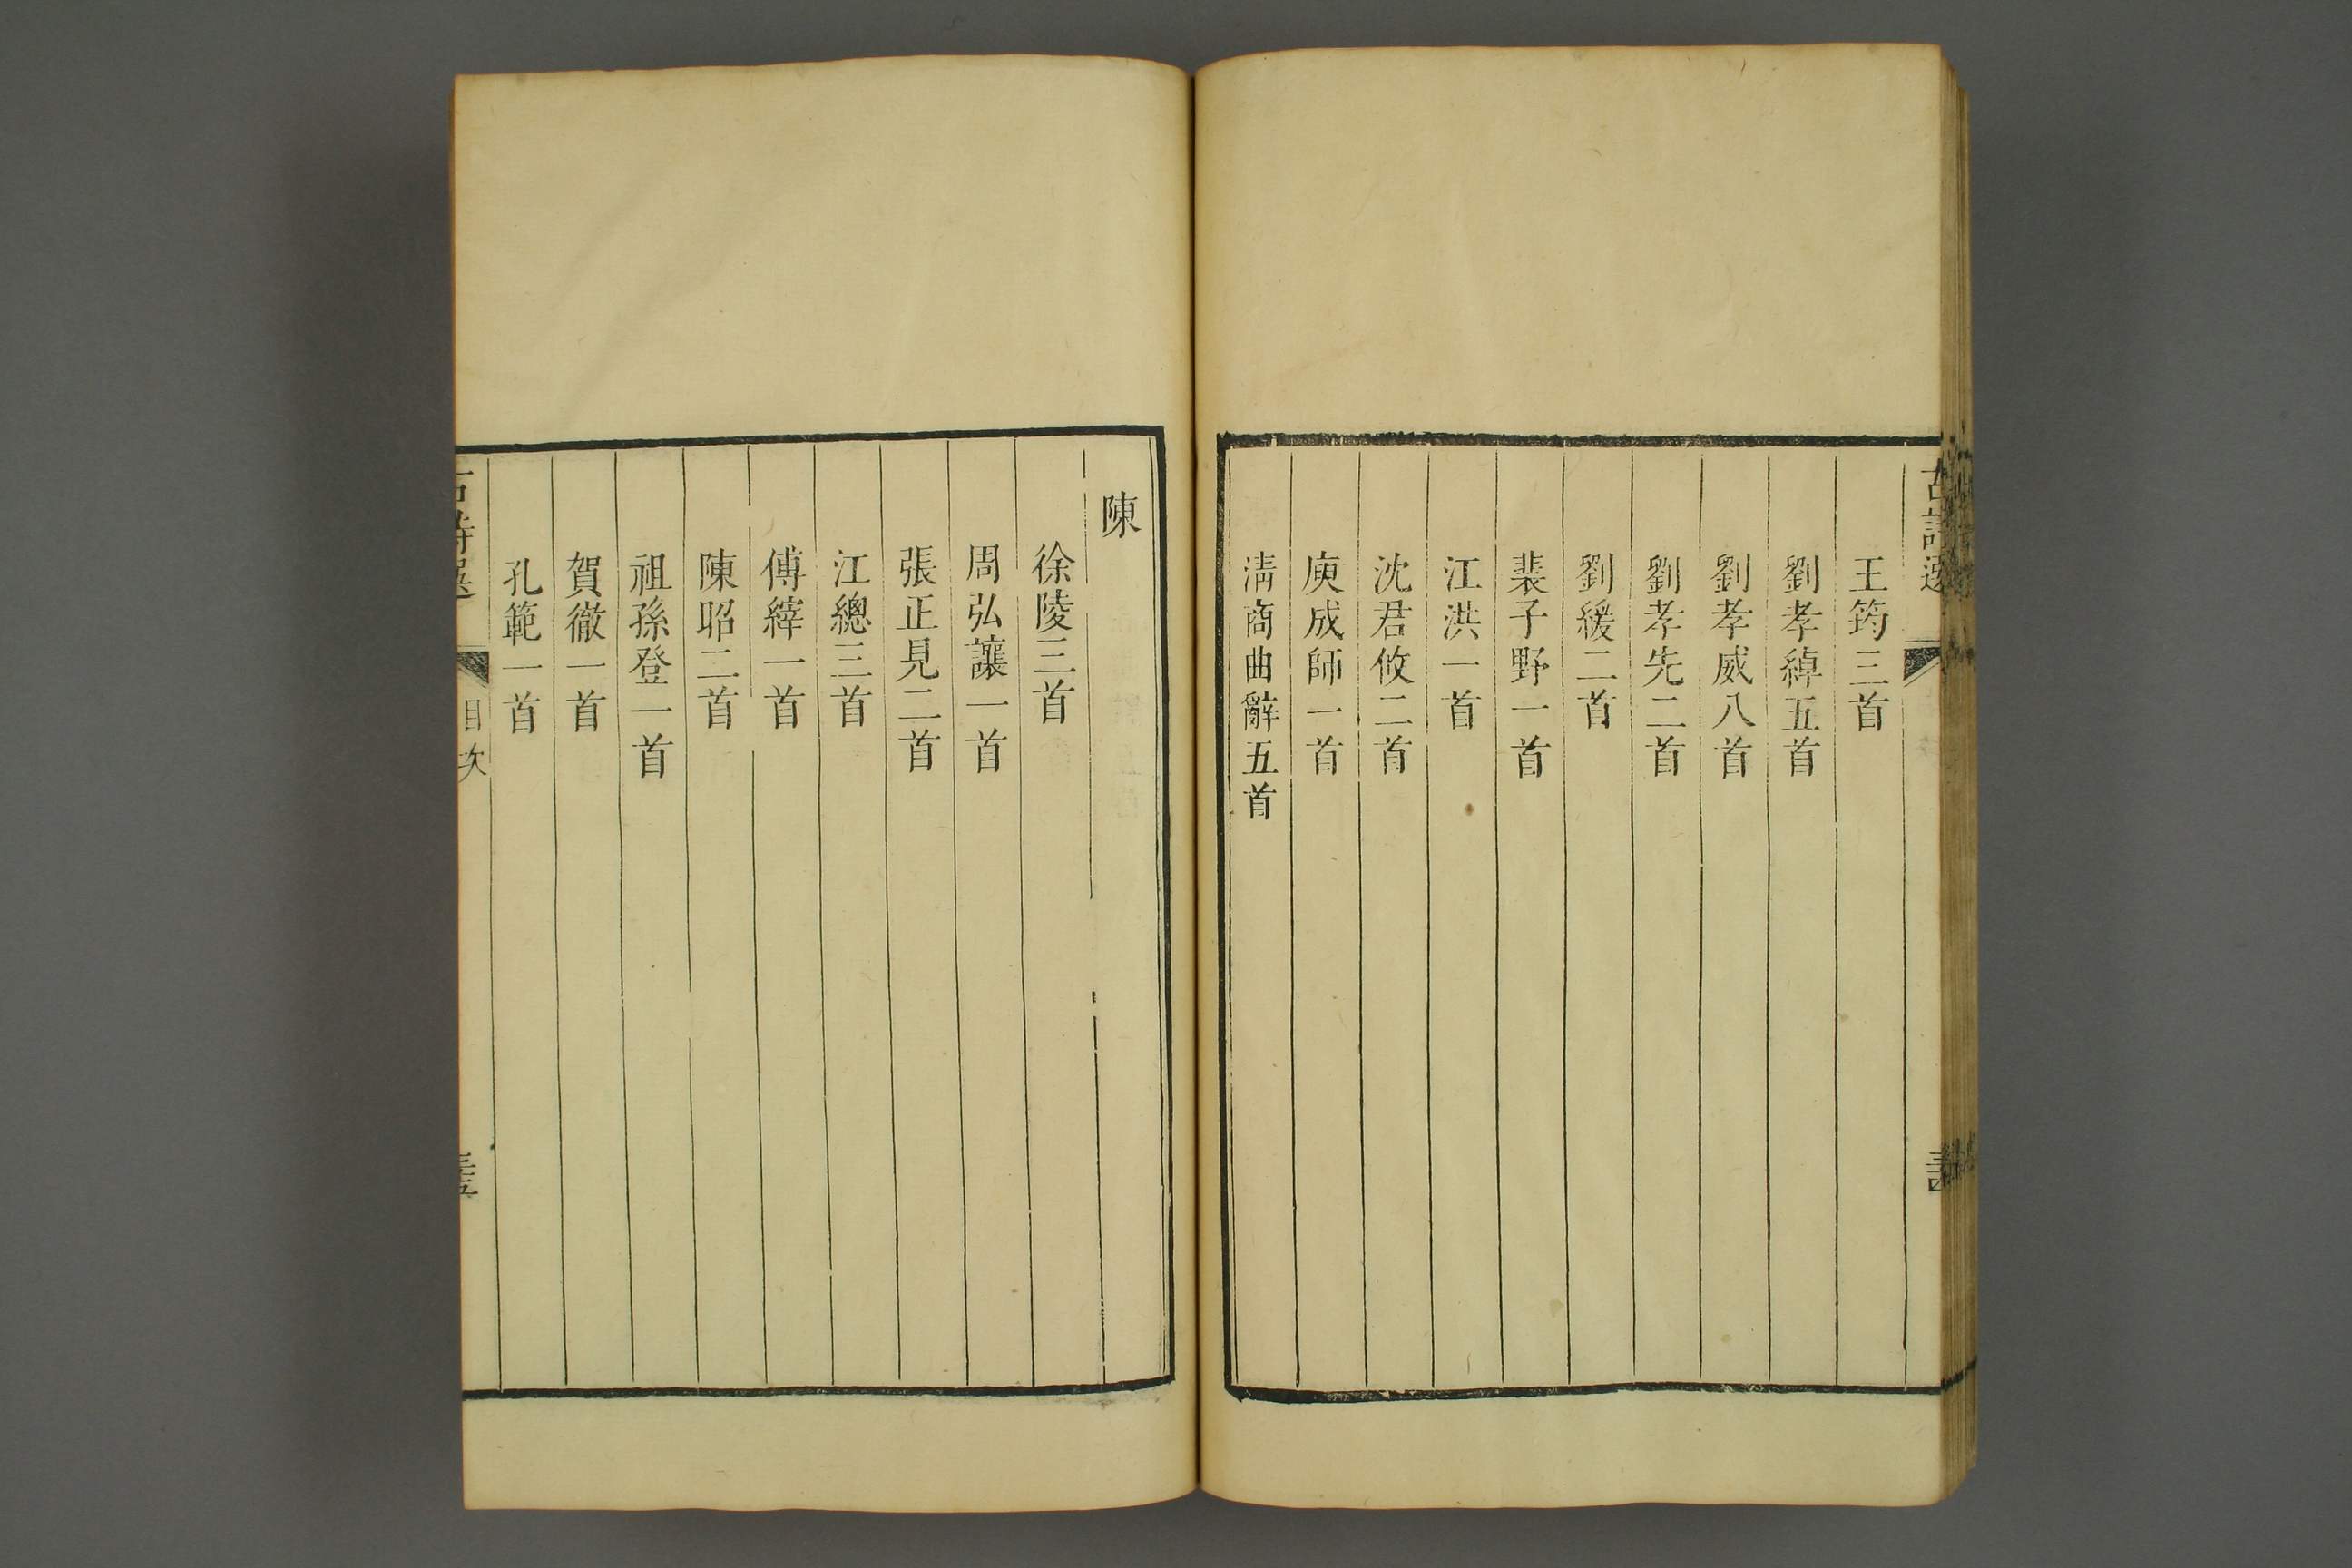 古詩選
王筠三首
劉孝綽五首
劉孝威八首
劉孝先二首
劉緩二首
裴子野一首
江洪一首
沈君攸二首
庾成師一首
淸商曲辭五首
陳
徐陵三首
周弘讓一首
張正見二首
江總三首
傅縡一首
陳昭二首
祖孫登一首
賀徹一首
孔範一首
古詩選
目次